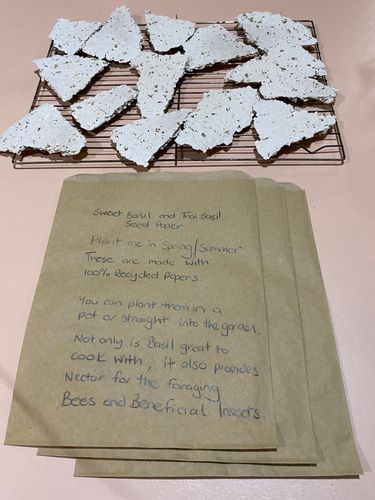 Sweet Basil and Thai Basil
Seed Paper
Plant me in Spring/Summer
These are made with
100% Recycled Papers.
You can plant them in a
pot or straight into the garden.
Not only is Basil great to
cook with, it also provides
Nectar for the foraging
Bees and Beneficial Insects.